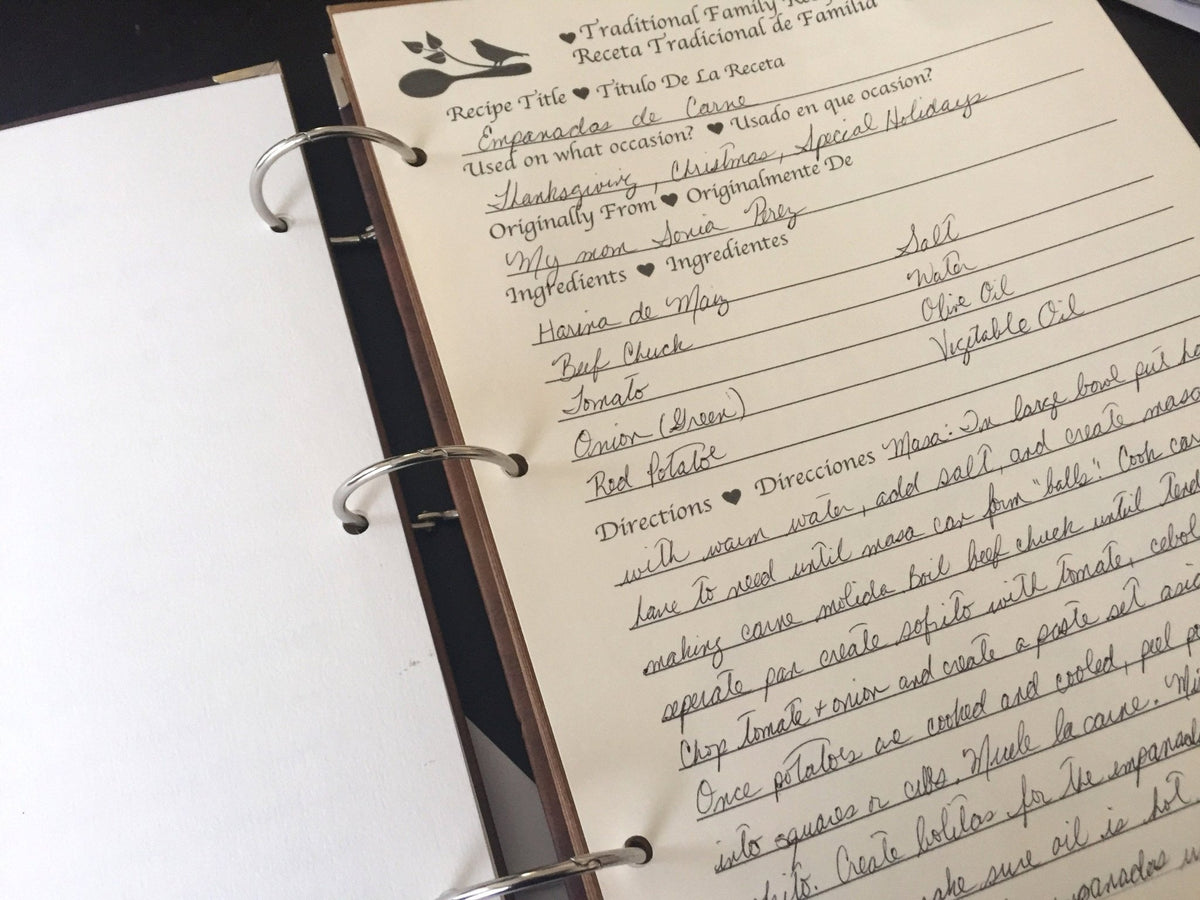 ♥ Traditional Family
Receta Tradicional de Familia
Recipe Title ♥ Titulo De La Receta
Empanadas de Carne
Used on what occasion? ♥ Usado en que ocasion?
Thanksgiving, Christmas, Special Holidays
Originally From ♥ Originalmente De
My mom Sonia Perez
Ingredients ♥ Ingredientes
Harina de Maiz
Beef Chuck
Tomato
Onion (Green)
Red Potatoe
Salt
Water
Olive Oil
Vegetable Oil
Directions ♥ Direcciones Masa: In large bowl put
with warm water, add salt, and create masa
have to need until masa can form "balls". Cook
making carne molida Boil beef chuck until
seperate pan create sofrito with tomate,
Chop tomate + onion and create a paste set
Once potatoes are cooked and cooled, peel
into squares or cubs. Muele la carne.
Create bolitas for the
sure oil is hot